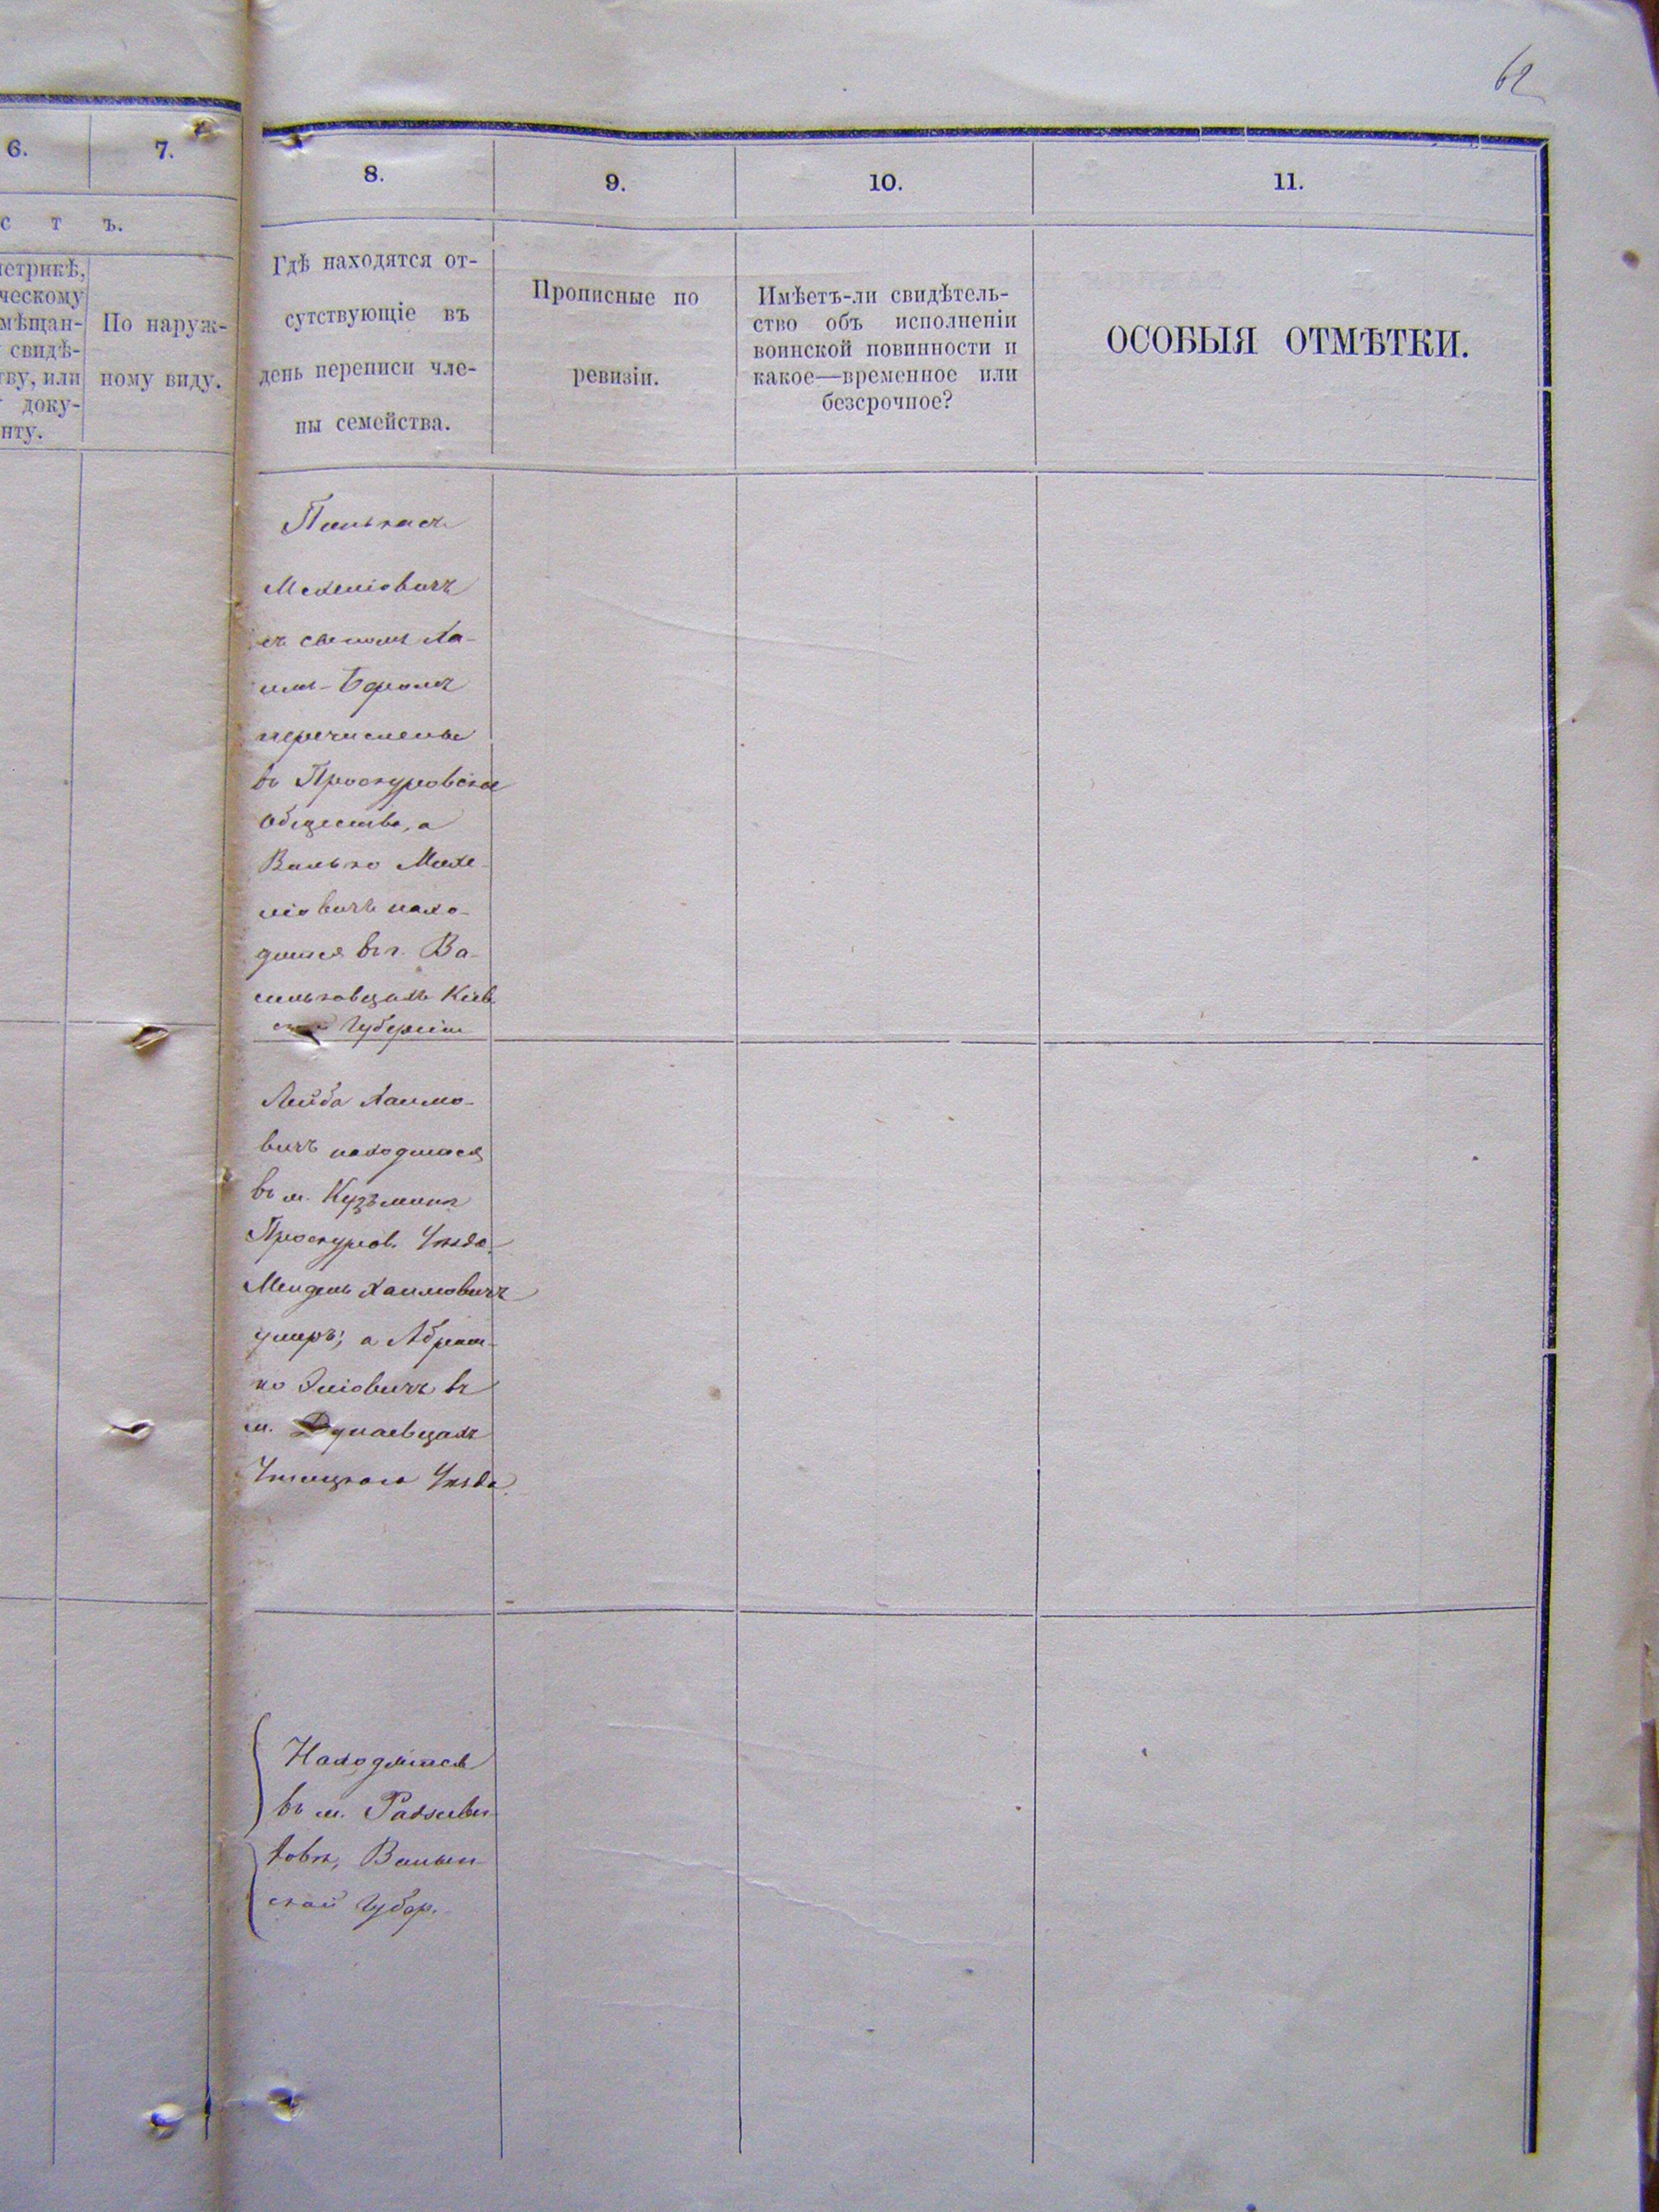 62
6.
7.
8.
9.
10.
11.
с т ъ.
етрикѣ,
ческому
мѣщан-
свидѣ-
тву, или
доку-
нту.
По наруж-
ному виду.
Гдѣ находятся от-
сутствующіе въ
день переписи чле-
ны семейства.
Прописные по
ревизіи.
Имѣетъ-ли свидѣтель-
ство объ исполненіи
воинской повинности и
какое—временное или
безсрочное?
ОСОБЫЯ ОТМѢТКИ.
съ сыномъ
перечислены
въ Проскуровское
Общество, а
Волько Мехе-
ліовичъ нахо-
дится въ г. Ва-
сильковцахъ Кіев
ской Губерніи
Лейба Хаимо-
вичъ находится
въ м. Кузьминѣ
Проскуров. Уѣзда
Мендель Хаимовичъ
умеръ; а Абрам-
ко Эліовичъ въ
м. Дунаевцахъ
Ушицкаго Уѣзда.
Находятся
въ м.
Волын
ской Губер.